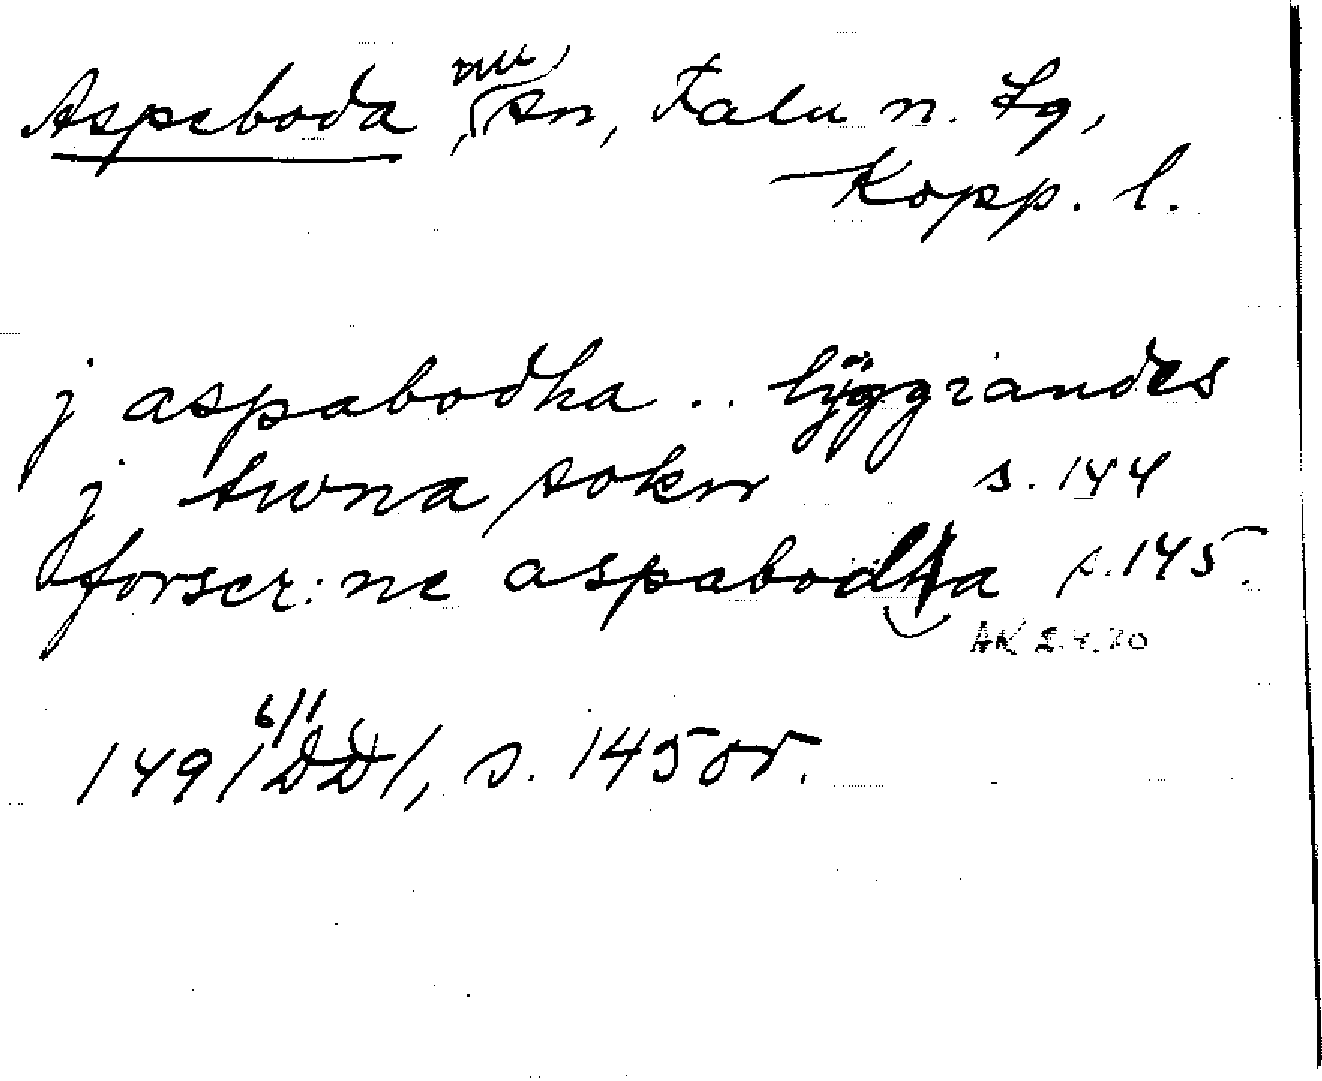 Aspeboda, (nu) sn, Falu n. tg,
Kopp. l.
j aspabodha .. lÿggiandes
j twna sokn s. 144
forscr: ne aspabodha s. 145.
AK 2.4.70
1491 6/1 DD 1, s. 145 or.